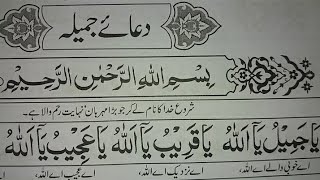 دعائے جمیلہ
بِسْمِ اللهِ الرَّحْمٰنِ الرَّحِيْمِ
شروع خدا کا نام لے کر جو بڑا مہربان نہایت رحم والا ہے۔
يَا جَمِيْلُ يَآ اَللهُ يَا قَرِيْبُ يَآ اَللهُ يَا عَجِيْبُ يَآ اَللهُ
اے خوبی والے اے اللہ، اے نزدیک اے اللہ، اے عجیب اے اللہ،